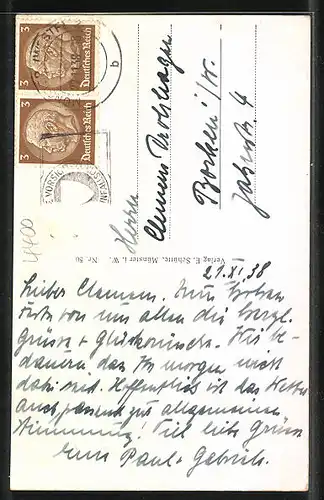 3 Deutsches Reich
3 Deutsches Reich
b
4400
Herrn
Clemens
Bocholt i/W.
Verlag E. Schütte, Münster i. W. Nr. 50
21.XI.38
Lieber Clemens. Zum
von uns allen die herzl.
Grüsse + Glückwünsche. Wir be-
dauern dass Ihr morgen nicht
dahi seid. Hoffentlich ist das Wetter
auch passend zur allgemeinen
Stimmung! Viel liebe Grüsse
Eure Paul + Gabriele.